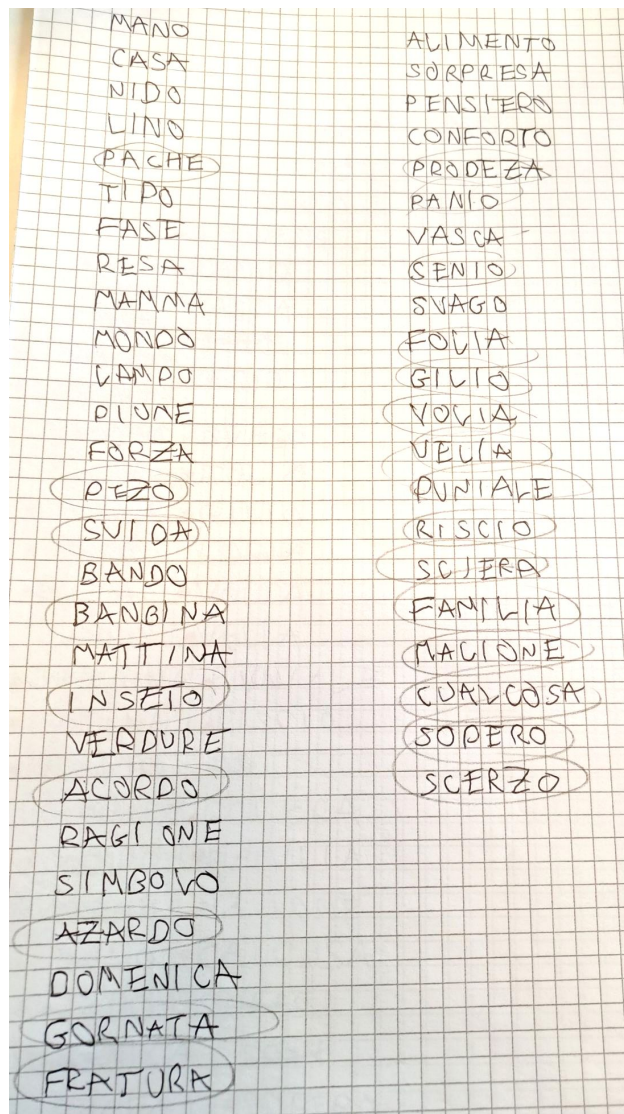 MANO
CASA
NIDO
LINO
PACHE
TIPO
FASE
RESA
MAMMA
MONDO
LAMPO
PIUME
FORZA
PEZO
SVIDA
BANDO
BANGINA
MATTINA
INSETO
VERDURE
ACORDO
RAGIONE
SIMBOLO
AZARDO
DOMENICA
GORNATA
FRATURA
ALIMENTO
SORPRESA
PENSIERO
CONFORTO
PRODEZA
PANIO
VASCA
SENIO
SVAGO
FOLIA
GILIO
VOLIA
VELIA
PUNIALE
RISCIO
SCIERA
FAMILIA
MALIONE
CUALCOSA
SOPERO
SCERZO